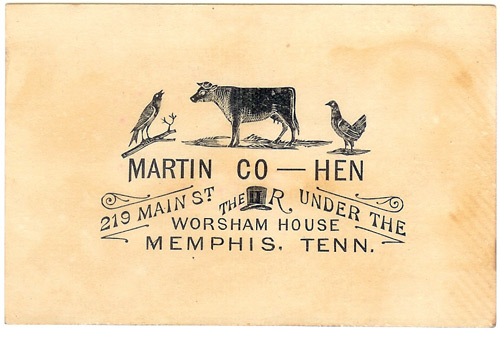 MARTIN CO — HEN
219 MAIN ST THE R. UNDER THE
WORSHAM HOUSE
MEMPHIS, TENN.